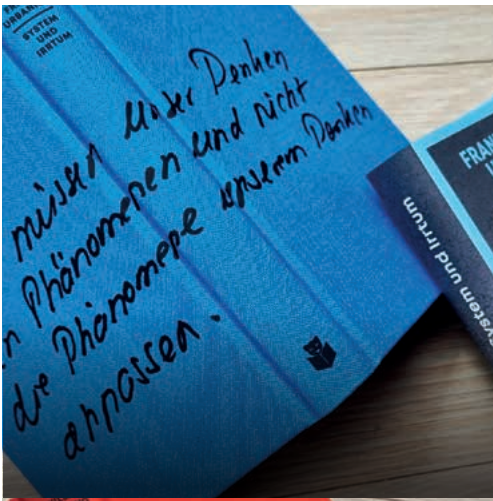 FR
URBANI
SYSTEM
UND
IRRTUM
müssen unser Denken
n Phänomenen und nicht
die Phänomene unserem Denken
anpassen.
FRAN
System und Irrtum